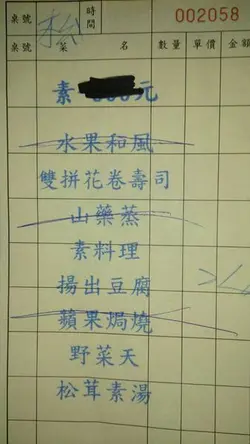 桌號 時間 002058
桌號 菜名 數量 單價 金額
松
素 元
水果和風
雙拼花卷壽司
山藥蒸
素料理
揚出豆腐
蘋果焗燒
野菜天
松茸素湯